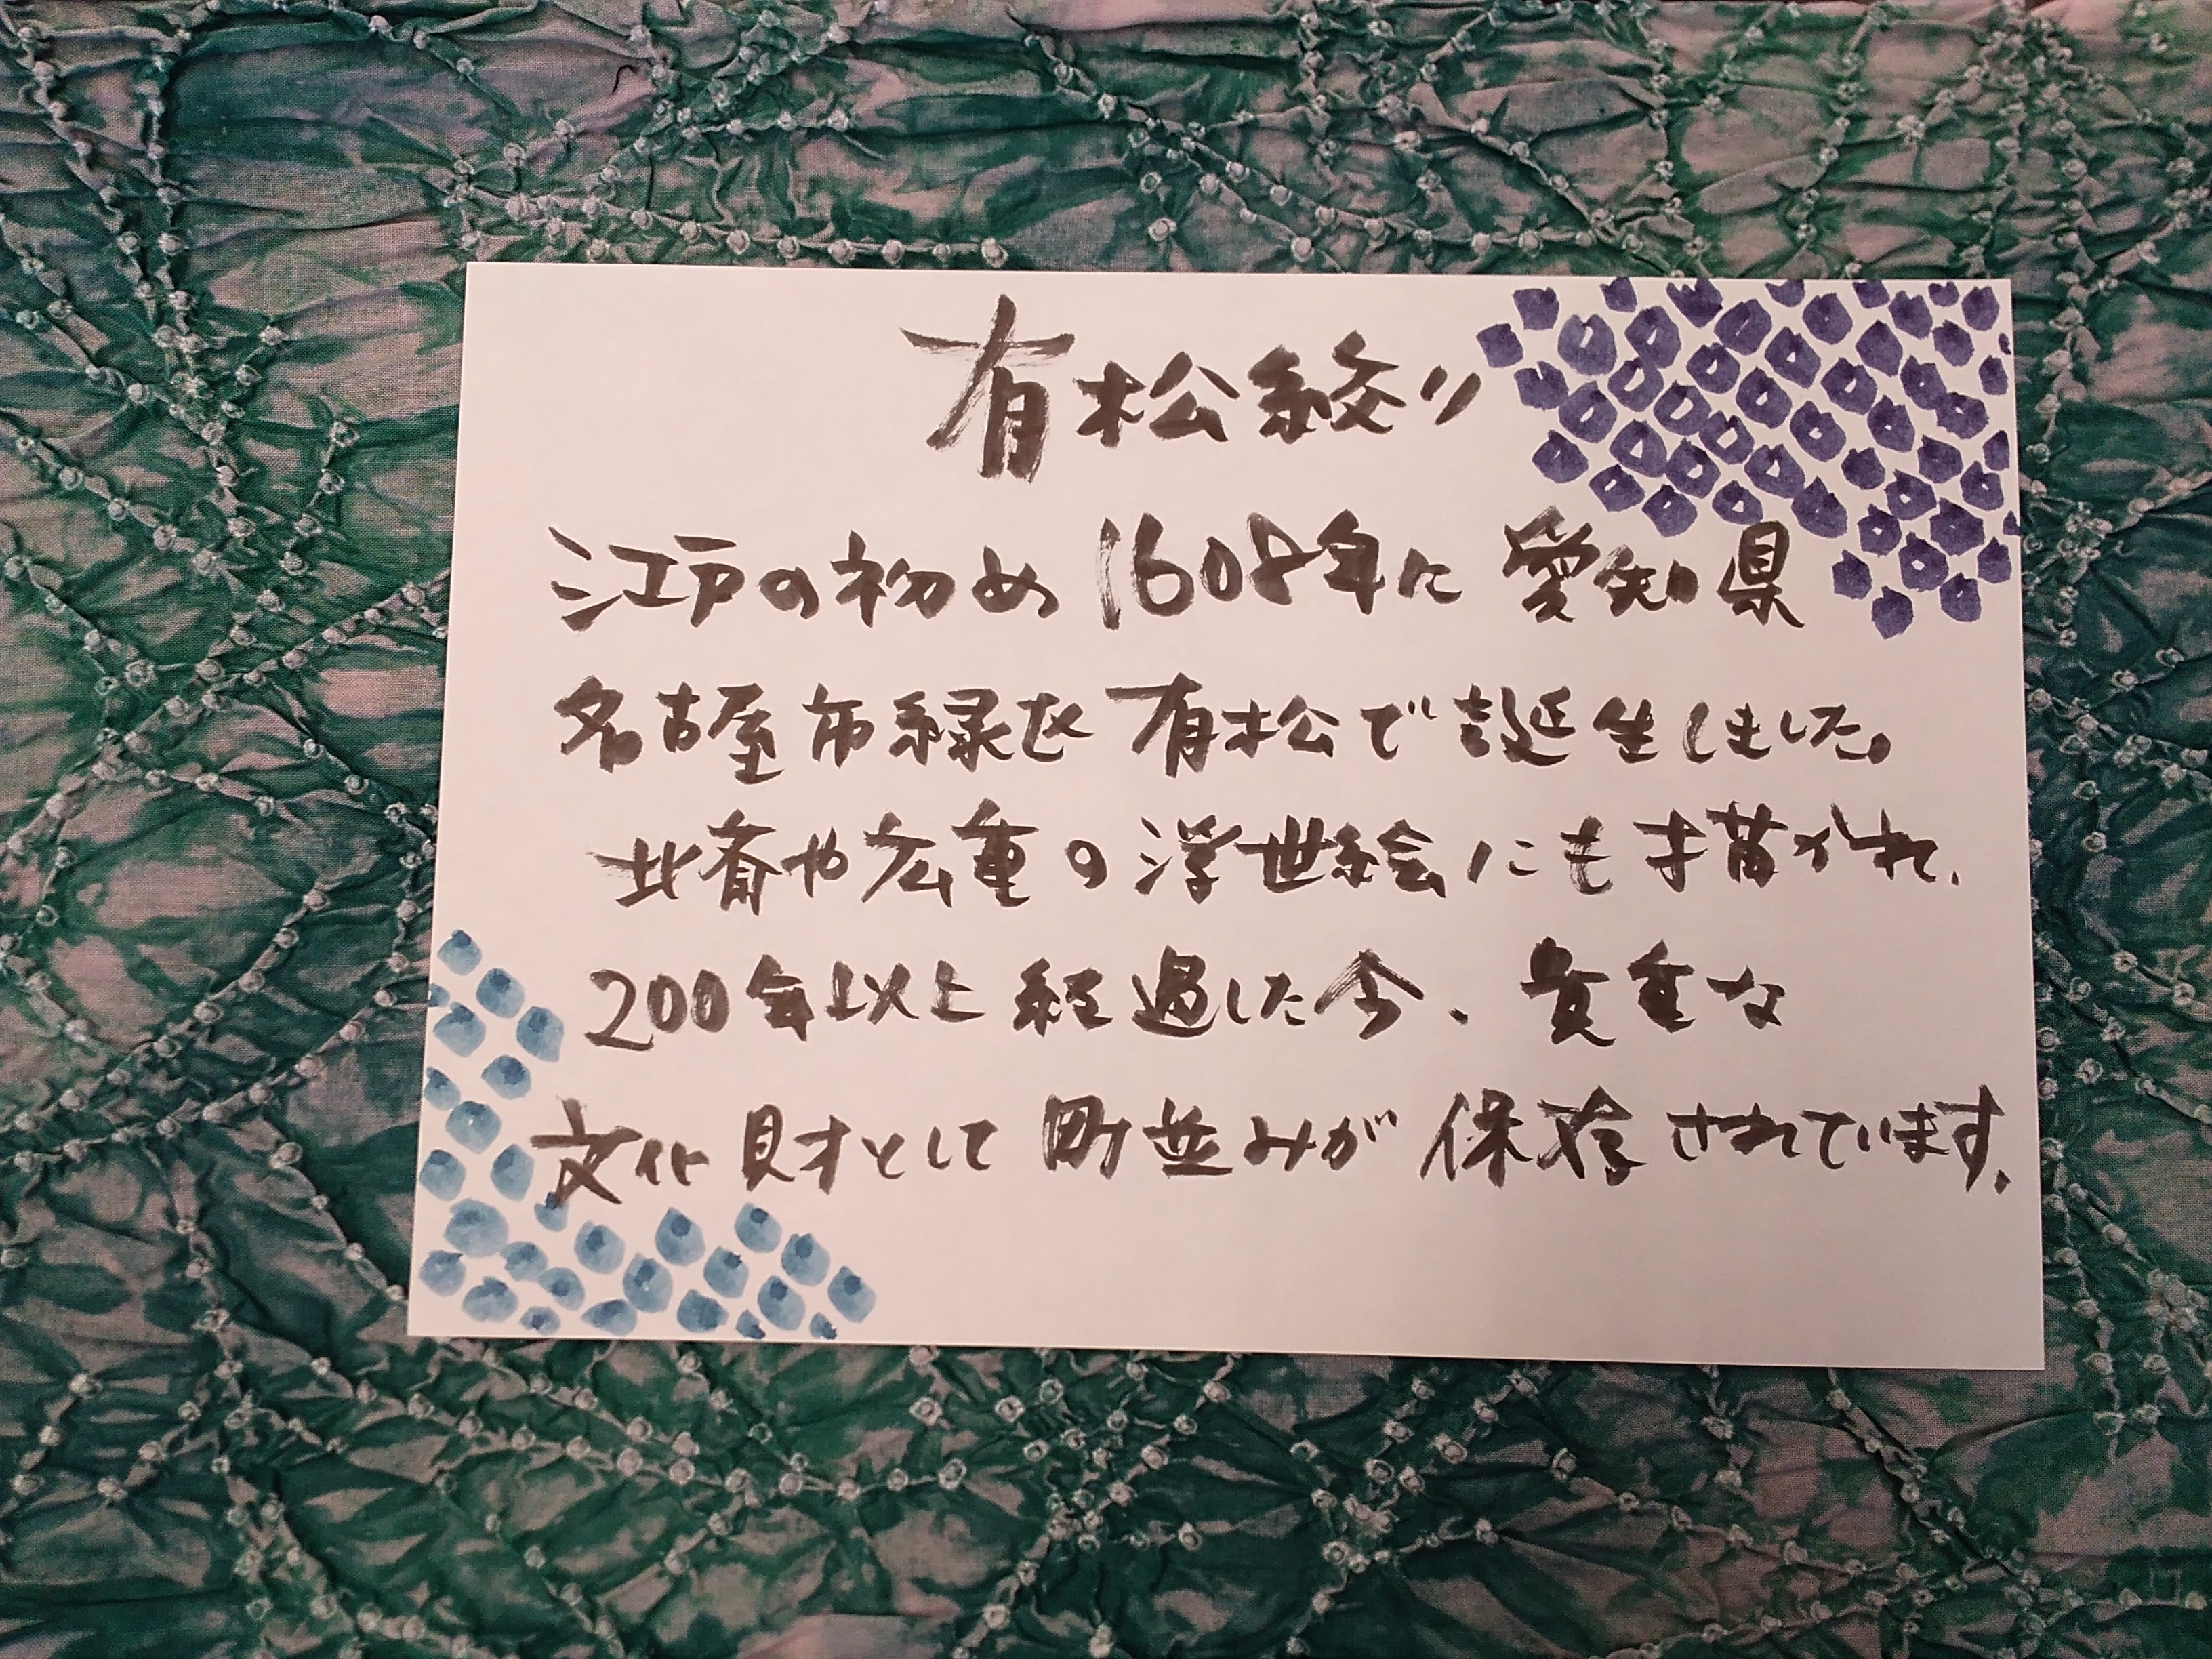 有松絞り
江戸の初め1608年に愛知県
名古屋市緑区有松で誕生しました。
北斎や広重の浮世絵にも描かれ、
200年以上経過した今、貴重な
文化財として町並みが保存されています。